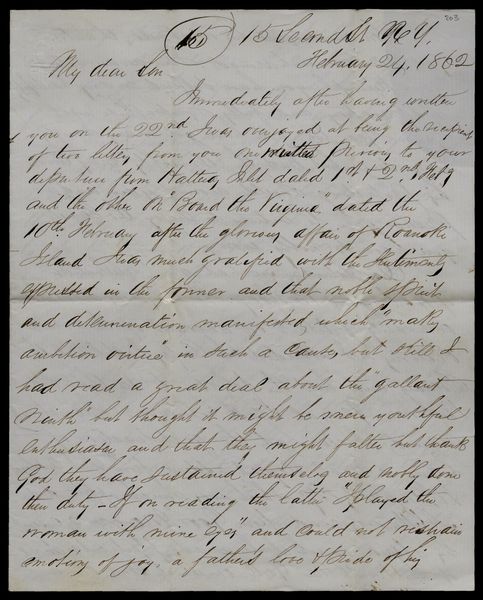 203
15 15 Second St N.Y.
February 24, 1862
My dear Son
Immediately after having written
you on the 22nd I was overjoyed at being the recipient
of two letters from you one written previous to your
departure from Hatteras Inlet dated 1st & 2nd Feby
and the other On Board the Virginia" dated the
10th February after the glorious affair of Roanoke
Island I was much gratified with the sentiments
expressed in the former and that noble spirit
and determination manifested, which "makes
ambition virtue" in such a cause, but still I
had read a great deal about the "gallant
Ninth" but thought it might be mere youthful
enthusiasm and that they might falter but thank
God they have sustained themselves and nobly done
their duty - If on reading the latter "I played the
woman with mine eyes" and could not restrain
emotions of joy, a father's love & pride of his